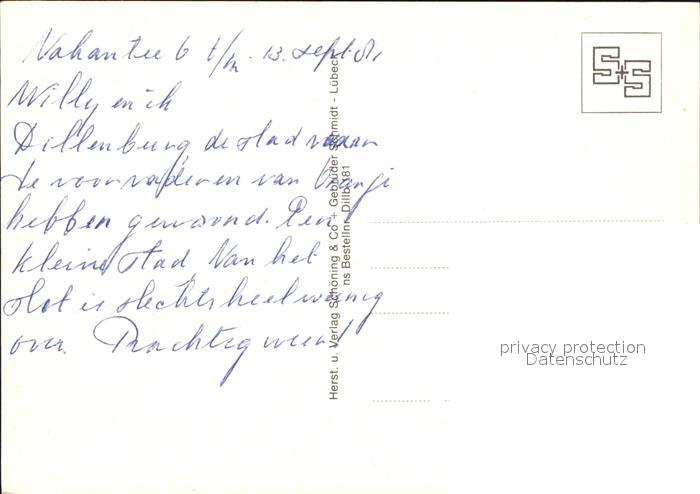 Vakantie 6 t/m 13. sept. 81
Willy en ik
Dillenburg de stad waar
de voorvaderen van Oranje
hebben gewoond. Een
kleine stad. Van het
slot is slechts heel weinig
over. Prachtig weer!
Herst. u. Verlag Schöning & Co + Gebrüder Schmidt - Lübeck
ns Bestellnr. Dillb. 181
S+S
privacy protection
Datenschutz